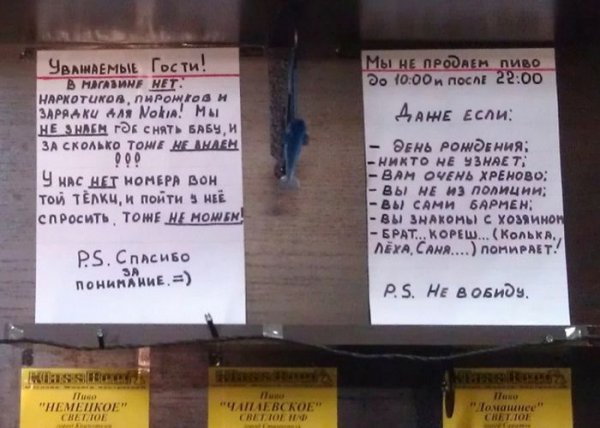 Уважаемые Гости!
В магазине НЕТ:
наркотиков, пирожков и
зарядки для Nokia! Мы
не знаем где снять бабу, и
за сколько тоже не знаем
!!!
У нас нет номера вон
той тёлки, и пойти у неё
спросить, тоже не можем!
P.S. Спасибо
за
понимание. =)
Мы не продаем пиво
до 10:00 и после 22:00
Даже если:
- День рождения;
- никто не узнает;
- Вам очень хреново;
- Вы не из полиции;
- Вы сами бармен;
- Вы знакомы с хозяином
- Брат... кореш... (Колька,
Лёха, Саня....) помирает!
P.S. Не в обиду.
Пиво
"НЕМЕЦКОЕ"
СВЕТЛОЕ
Пиво
"ЧАПАЕВСКОЕ"
СВЕТЛОЕ Н/Ф
Пиво
"Домашнее"
СВЕТЛОЕ